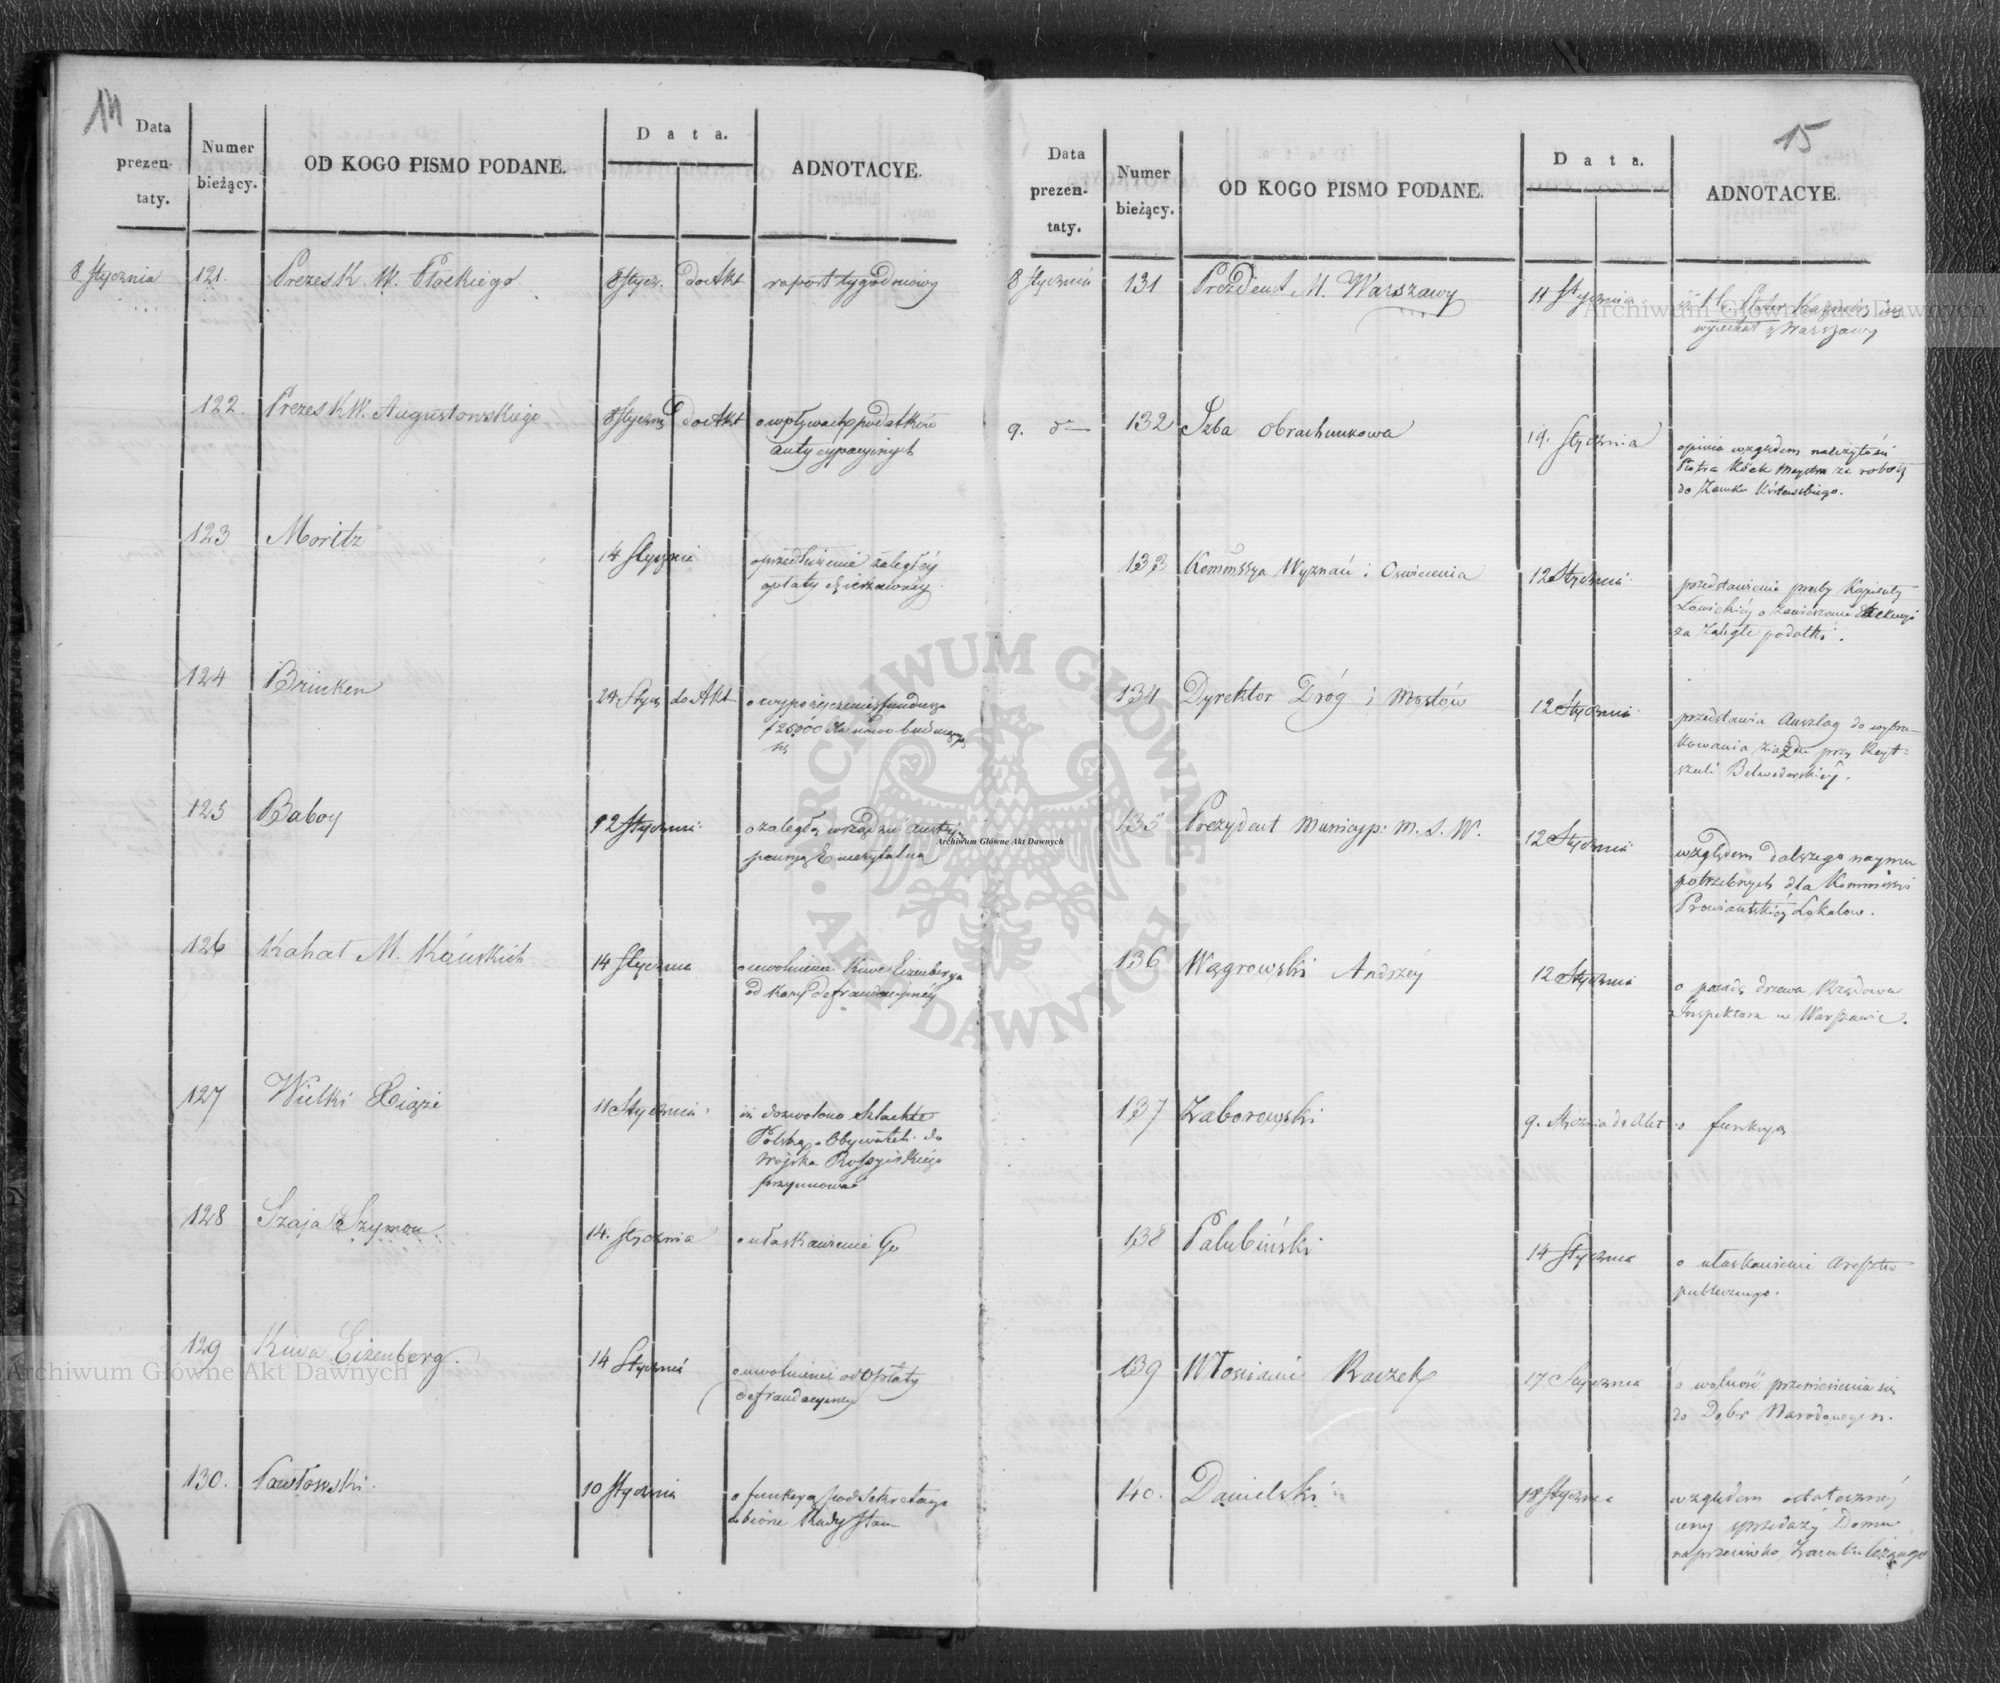 14
Data
prezen-
taty.
Numer
bieżący.
OD KOGO PISMO PODANE.
Data.
ADNOTACYE.
8 Stycznia 121. Prezes K. W. Płockiego 8 Stycz. do Akt raport tygodniowy
122. Prezes K W. Augustowskiego 8 Stycz do Akt o wpływach podatków
antycypacyinych
123 Moritz 14 Stycznia
opłaty dzierzawney
124 Brinken 24 Stycz do Akt o wypożyczenie funduszu
125 Baboy 12 Styczni: o zaległą
126 Kahat M. Kónskich 14 Stycznia o uwolnienie Kiwe Eizenberga
od Kary defraudacyjnéy
127 Wielki Xiąże 11 Stycznia iż dozwolono Szlachte
Polską i Obywateli do
wojska Rossyiskiego
przyimować
128 Szaja Szymon 14. Stycznia o ułaskawienie Go
129 Kiwa Eizenberg. 14 Stycznia o uwolnienie od Opłaty
defraudacyiney
130. Pawłowski. 10 Stycznia o funkcyą pod Sekretarza
w biórze Rady Stanu
15
Data
prezen-
taty.
Numer
bieżący.
OD KOGO PISMO PODANE.
Data.
ADNOTACYE.
8 Stycznia 131 Prezdient M. Warszawy 11 Stycznia
wyiechał z Warszawy
9. do 132 Izba Obrachunkowa 14. Stycznia opinia względem należytości
Piotra Köck Maystra za roboty
do Zamku Królewskiego.
133 Kommssya Wyznań i Oswiecenia 12 Stycznia przedstawienie prośby Kapituły
Łowickiéy o zawieszenie Exekucyi
za zaległe podatki.
134 Dyrektor Dróg i Mostów 12 Stycznia przedstawia Anszlag do wybru-
kowania ziazdu przy Reyt-
szuli Belwederskiéy.
135 Prezydent Municyp: M. S. W. 12 Stycznia względem dalszego naymu
potrzebnych dla Kommissyi
Prowiantskiéy Lokalow.
136 Wągrowski Andrzéy 12 Stycznia o posadę drzewa Rządowa
Inspektora w Warszawie.
137 Zaborowski 9. Stycznia do Akt o funkcyą
138 Pałubiński 14 Stycznia o ułaskawienie Aresztu
publicznego.
139 Włoscianie Raczek 17. Stycznia o wolność przeniesienia się
do Dobr Narodowych.
140. Danielski 18 Stycznia względem ostateczney
ceny sprzedaży Domu
naprzeciwko Zamku leżącego
ARCHIWUM GŁÓWNE AKT DAWNYCH
Archiwum Główne Akt Dawnych
Archiwum Główne Akt Dawnych
Archiwum Główne Akt Dawnych